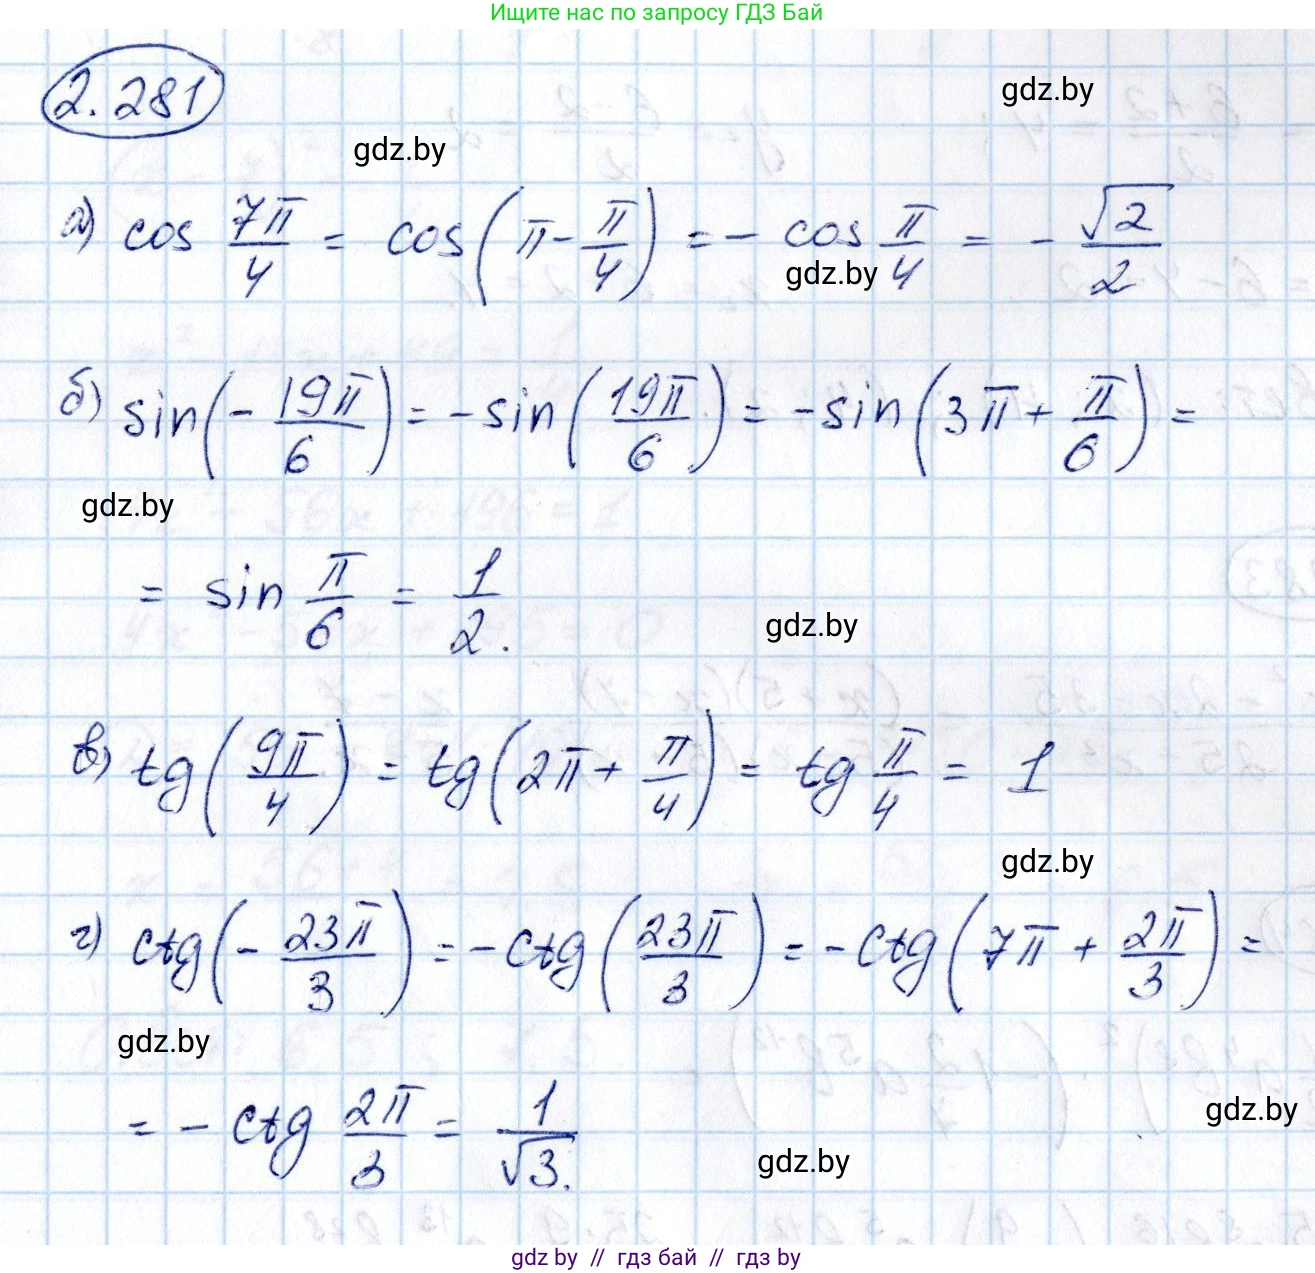 Ищите нас по запросу ГДЗ Бай
2.281
gdz.by
gdz.by
а) cos 7π/4 = cos(π - π/4) = - cos π/4 = - √2/2
gdz.by
б) sin(- 19π/6) = - sin(19π/6) = - sin(3π + π/6) =
gdz.by
= sin π/6 = 1/2.
gdz.by
в) tg(9π/4) = tg(2π + π/4) = tg π/4 = 1
gdz.by
г) ctg(- 23π/3) = - ctg(23π/3) = - ctg(7π + 2π/3) =
gdz.by
= - ctg 2π/3 = 1/√3.
gdz.by
gdz.by
gdz.by // гдз бай // гдз by